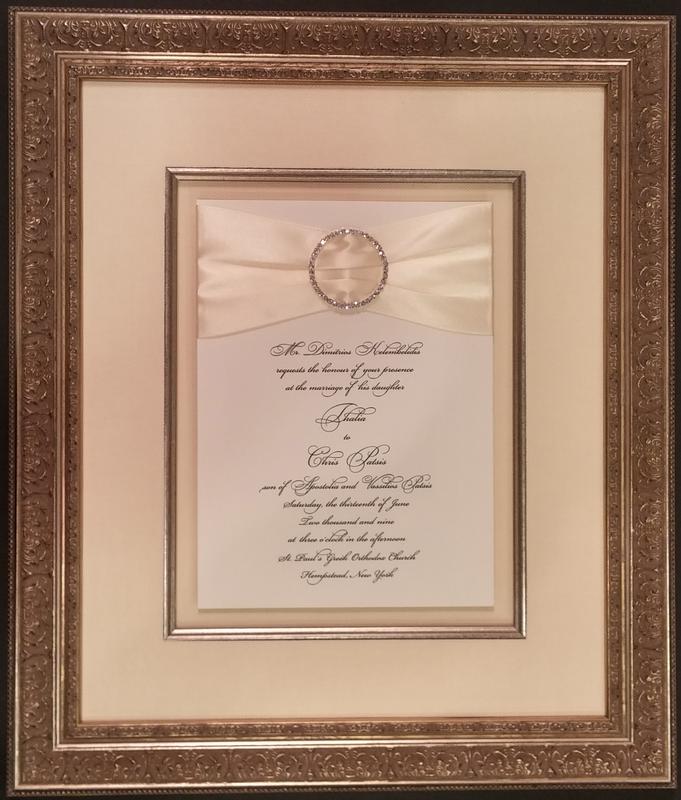 Mr. Dimitrios Kelembelidis
requests the honour of your presence
at the marriage of his daughter
Thalia
to
Chris Patsis
son of Apostolia and Vassilios Patsis
Saturday, the thirteenth of June
Two thousand and nine
at three o'clock in the afternoon
St. Paul's Greek Orthodox Church
Hempstead, New York